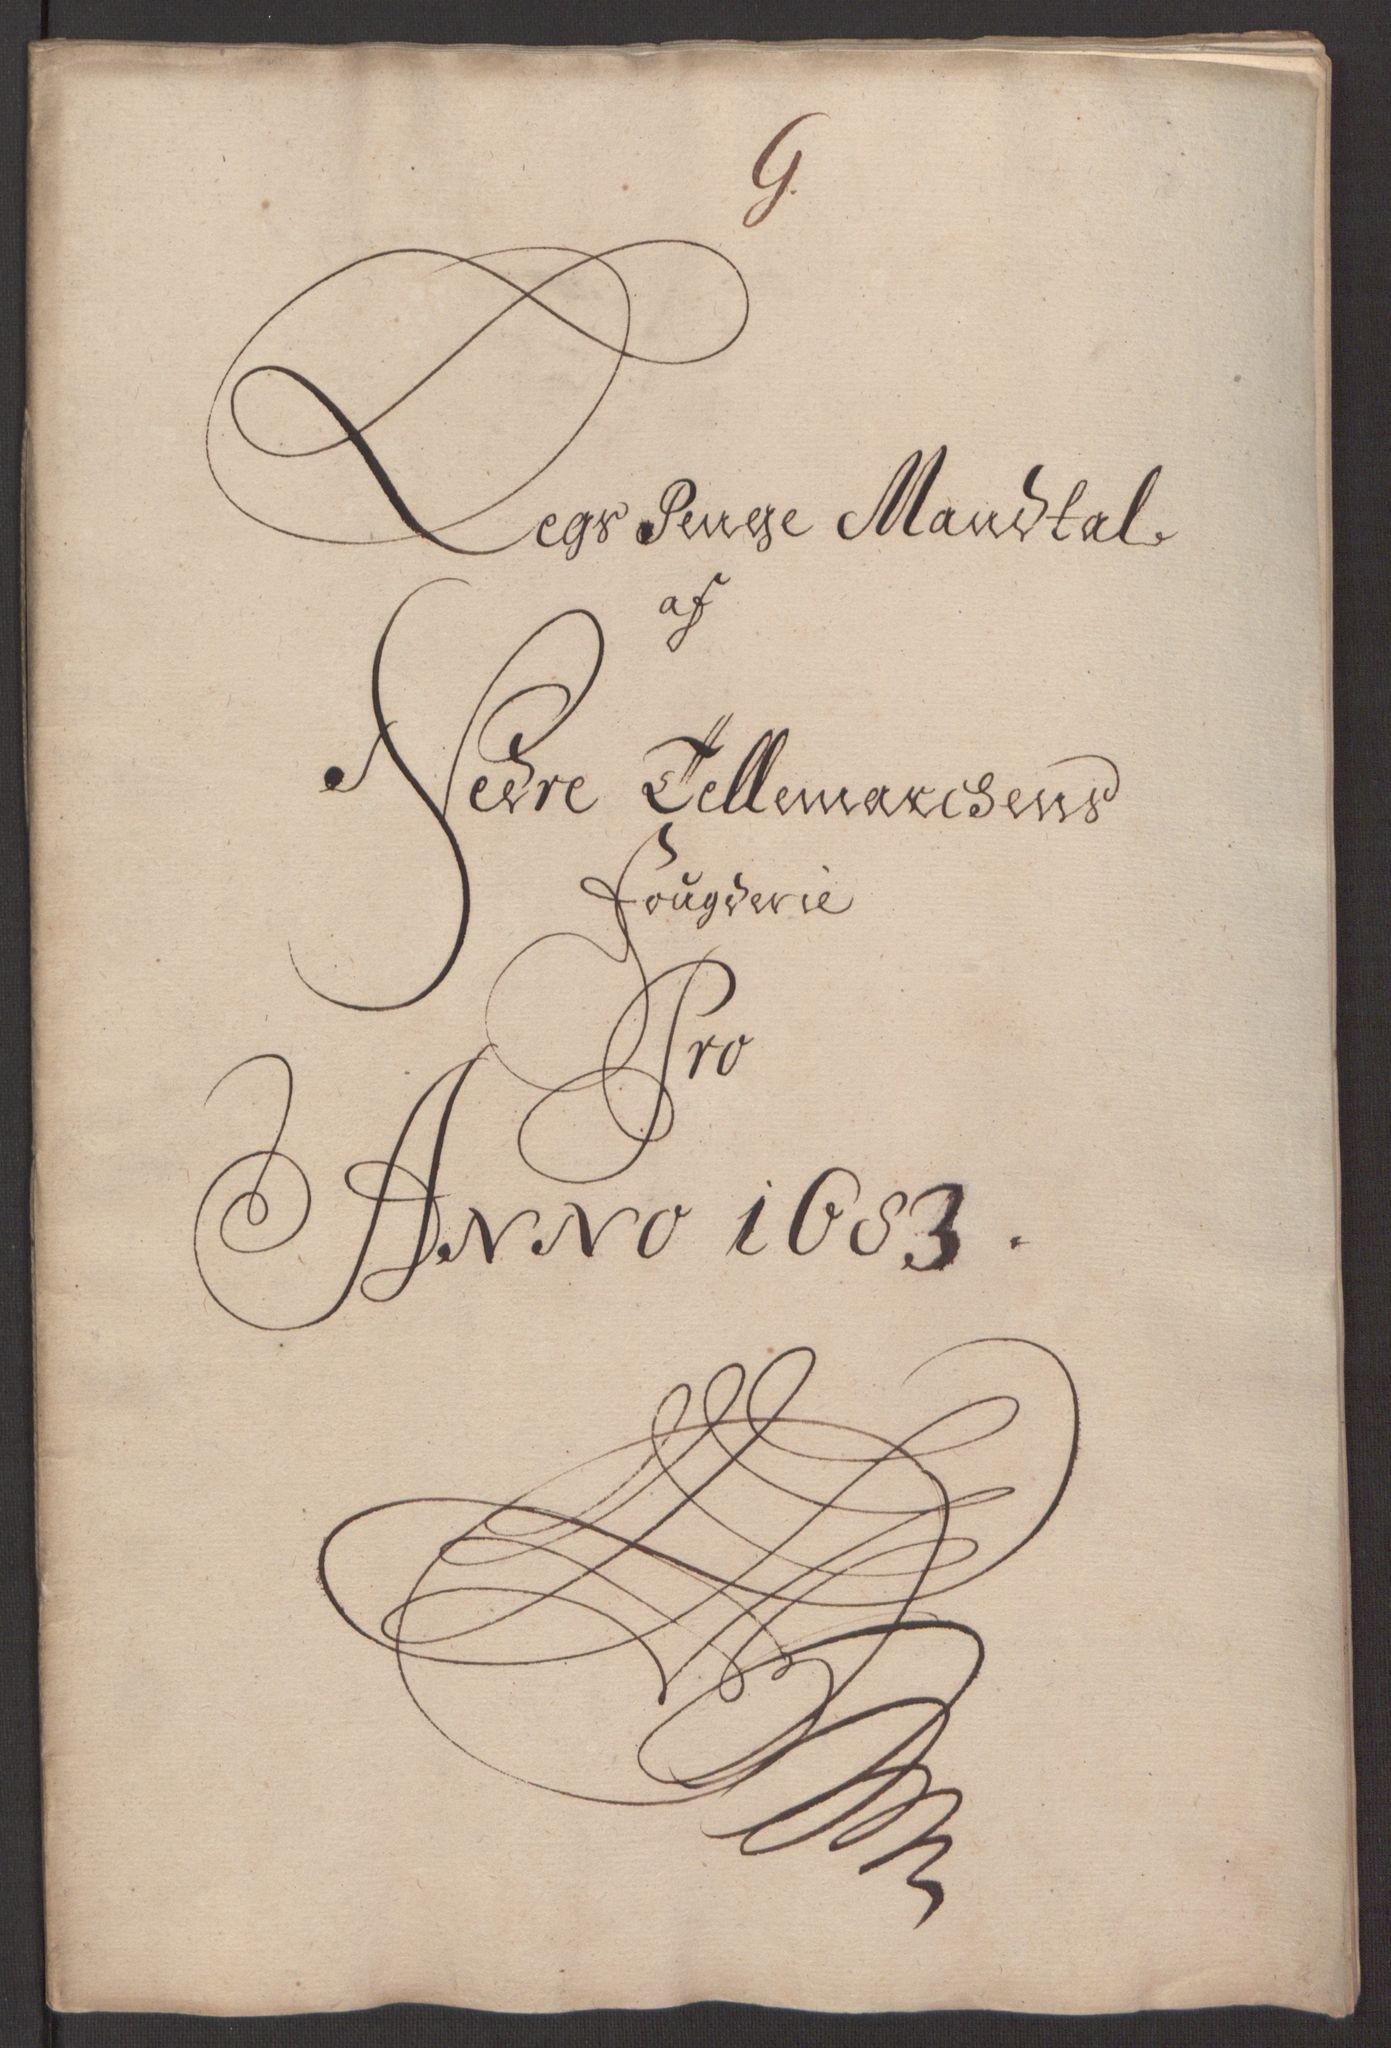 G.
Legs Penge Mandtal.
af
Nedre Tellemarchens
Fougderie
Pro
Anno 1683.